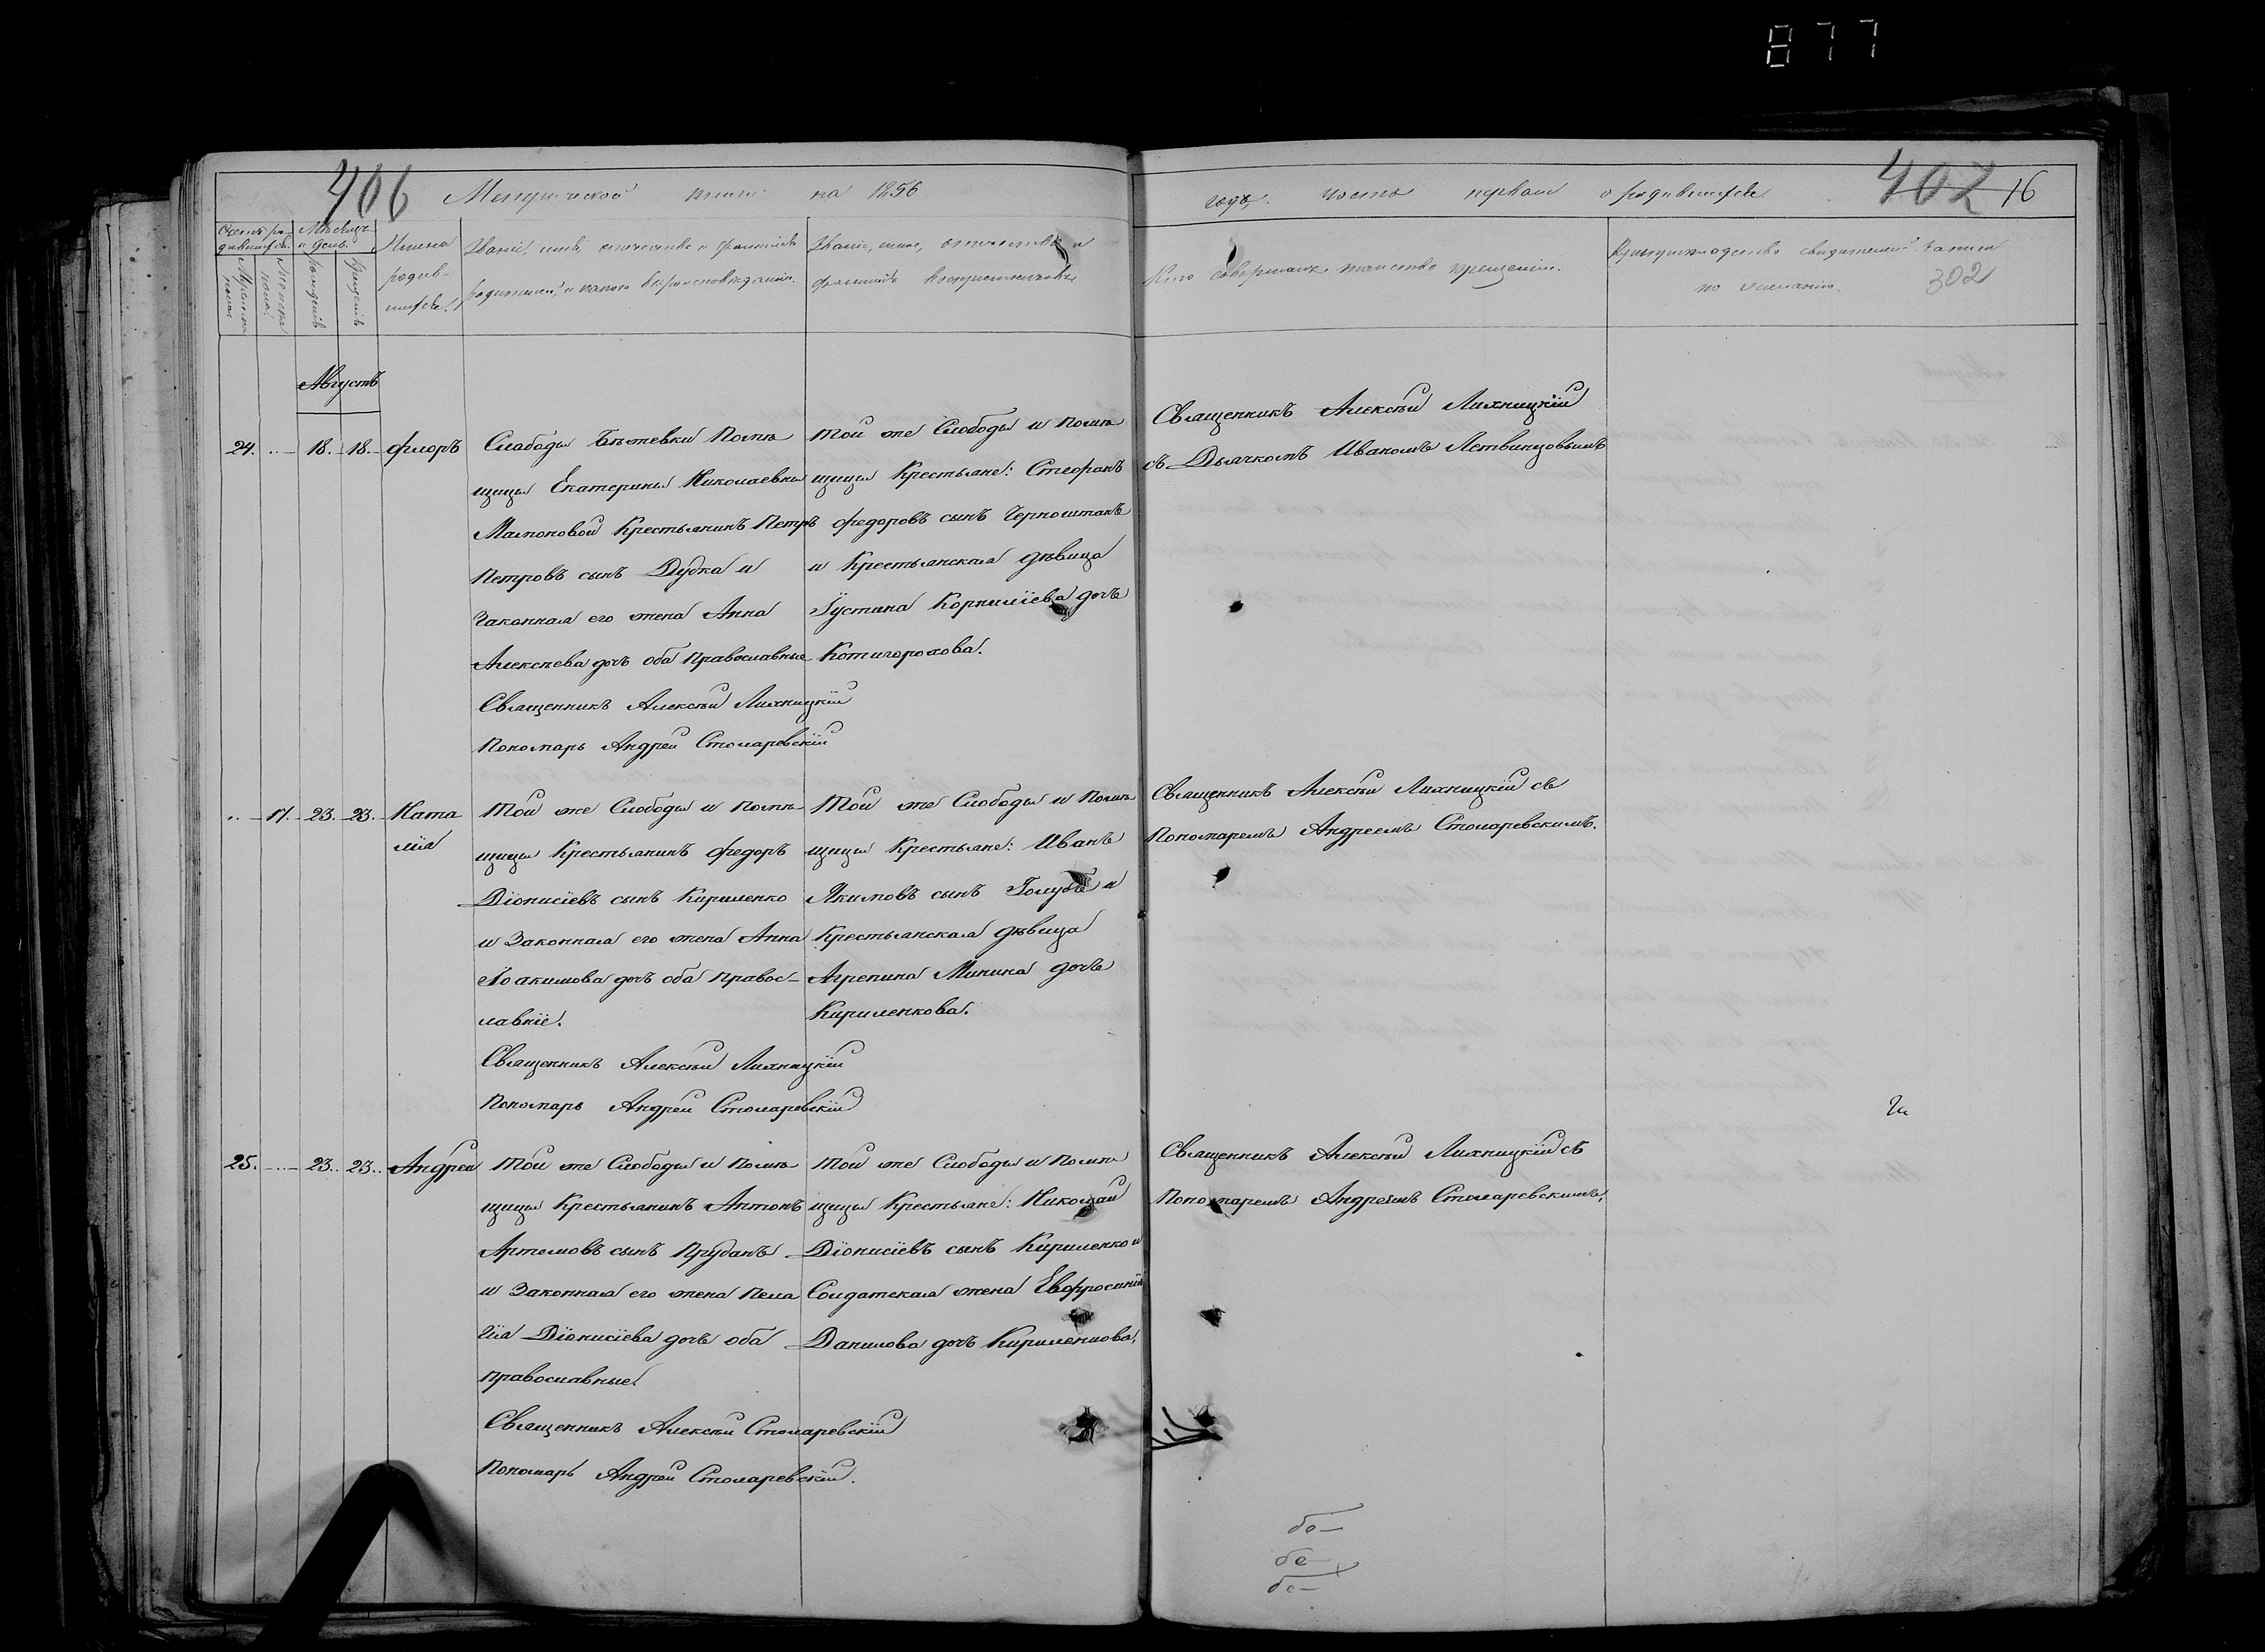 877
406 Метрической книги на 1856
года, часть первая о родившихся
402 16
Счетъ ро-
дившихся.
Мужеска
пола.
Женска
пола.
Мѣсяцъ
и день.
рожденія
крещенія
Имена
родив-
шихся.
Званіе, имя, отечество и фамилія
родителей, и какого вѣроисповѣданія.
Званіе, имя, отечество и
фамилія воспріемниковъ
Кто совершалъ таинство крещенія.
Рукоприкладство свидѣтелей записи
по желанію.
302
Августъ
24. 18. 18. Флоръ
Слободы Бѣжевки Помѣ
щицы Екатерины Николаевны
Мамоновой Крестьянинъ Петръ
Петровъ сынъ Дудка и
Законная его жена Анна
Алексѣева дочь оба Православные
Священникъ Алексѣй Лихницкій
Пономарь Андрей Столяревскій
Той же Слободы и Помѣ
щицы Крестьяне: Стефанъ
Федоровъ сынъ Черноштанъ
и Крестьянская дѣвица
Іустина Корниліева дочь
Котигорохова.
Священникъ Алексѣй Лихницкій
съ Дьячкомъ Иваномъ Летвинцовымъ
17. 23. 23. Ната
лія
Той же Слободы и Помѣ
щицы Крестьянинъ Федоръ
Діонисіевъ сынъ Кириленко
и Законная его жена Анна
Іоакимова дочь оба Правос-
лавніе.
Священникъ Алексѣй Лихницкій
Пономарь Андрей Столяревскій
Той же Слободы и Помѣ
щицы Крестьяне: Иванъ
Якимовъ сынъ Голубъ и
Крестьянская дѣвица
Агрепина Минина дочь
Кириленкова.
Священникъ Алексѣй Лихницкій съ
Пономаремъ Андреемъ Столяревскимъ.
25. 23. 23. Андрей
Той же Слободы и Помѣ
щицы Крестьянинъ Антонъ
Артемовъ сынъ Прудакъ
и Законная его жена Пела
гія Діонисіева дочь оба
православные.
Священникъ Алексѣй Столяревскій
Пономарь Андрей Столяревскій.
Той же Слободы и Помѣ
щицы Крестьяне: Николай
Діонисіевъ сынъ Кириленко и
Солдатская жена Евфросинія
Данилова дочь Кириленкова,
Священникъ Алексѣй Лихницкій съ
Пономаремъ Андреемъ Столяревскимъ,